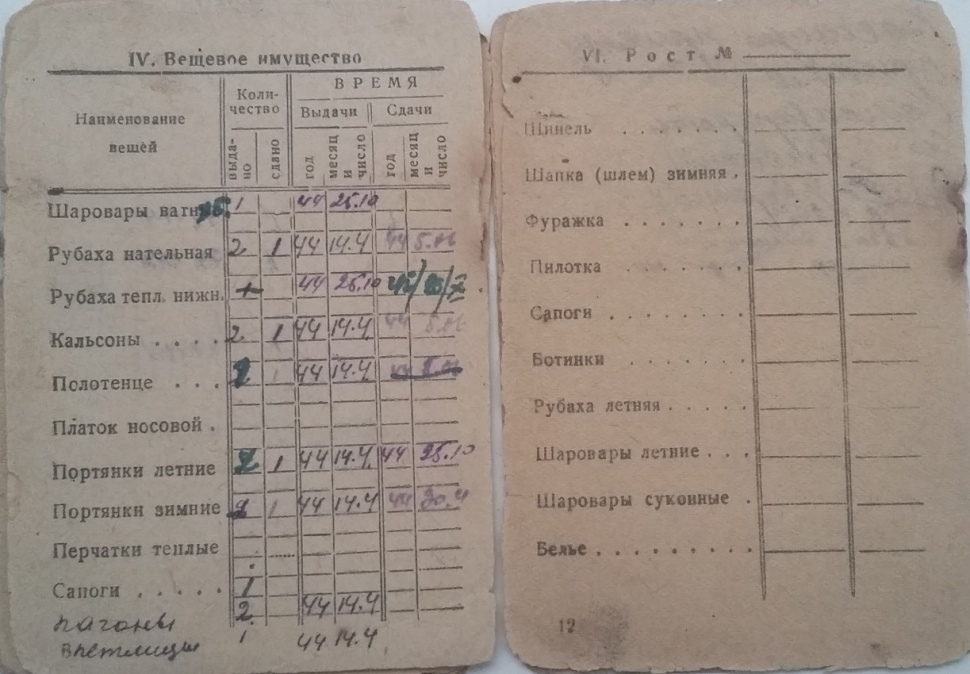 IV. Вещевое имущество
Наименование вещей
Коли-
чество
ВРЕМЯ
Выдачи
Сдачи
выда-
но
сдано
год
месяц
и
число
год
месяц
и
число
Шаровары ватн 1 44 25.10
Рубаха нательная 2 1 44 14.4 44
Рубаха тепл. нижн. 44 25.10
Кальсоны . . . . 2 1 44 14.4 44
Полотенце . . . 2 1 44 14.4
Платок носовой .
Портянки летние 2 1 44 14.4 44 25.10
Портянки зимние 2 1 44 14.4 44 20.4
Перчатки теплые
Сапоги . . . . . 1
2 44 14.4
пагоны
1 44 14.4
VI. Рост №
Шинель . . . . . .
Шапка (шлем) зимняя .
Фуражка . . . . . .
Пилотка . . . . . .
Сапоги . . . . . .
Ботинки . . . . . .
Рубаха летняя . . . . .
Шаровары летние . . .
Шаровары суконные .
Белье . . . . . . . .
12